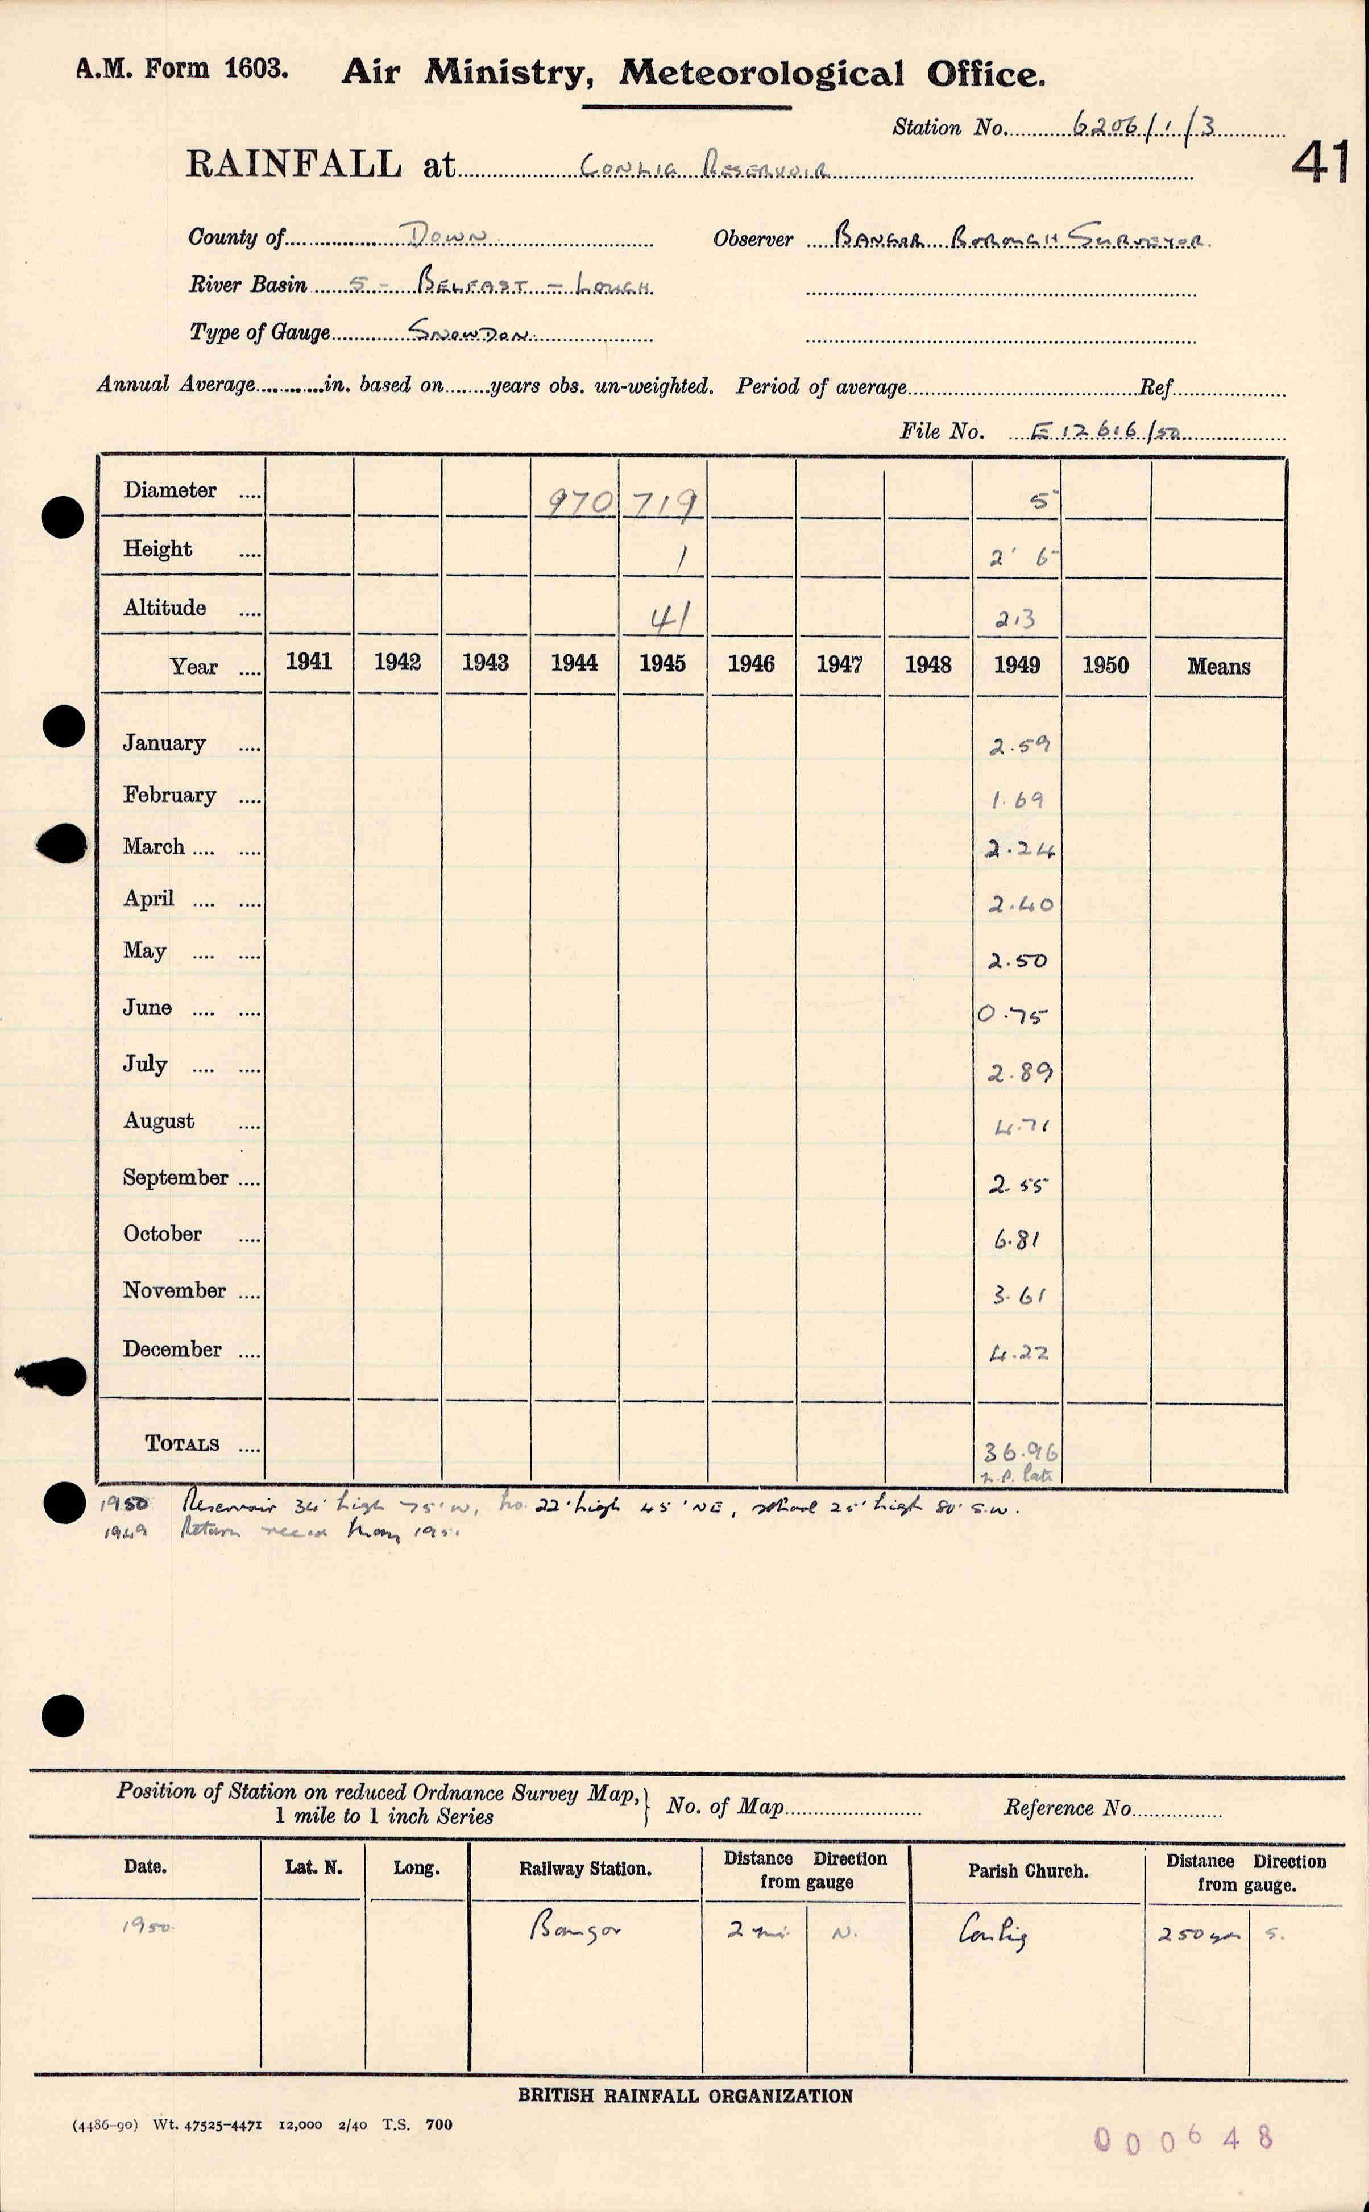 A.M. Form 1603. Air Ministry, Meteorological Office.
Station No. 6206/1/3
41
RAINFALL at CONLIG RESERVOIR
County of DOWN Observer BANGOR BOROUGH SURVEYOR
River Basin 5 - BELFAST - LOUGH
Type of Gauge SNOWDON.
Annual Average in. based on years obs. un-weighted. Period of average Ref
File No. E 12616/50
Diameter .... 970 719 5
Height .... 1 2'
Altitude .... 41 213
Year .... 1941 1942 1943 1944 1945 1946 1947 1948 1949 1950 Means
January .... 2.59
February .... 1.69
March .... .... 2.24
April .... .... 2.40
May .... .... 2.50
June .... .... 0.75
July .... .... 2.89
August .... 4.71
September .... 2.55
October .... 6.81
November .... 3.61
December .... 4.22
TOTALS .... 36.96
n.p. late
1950 Reservoir 34' high 75' W, ho. 22' high 45' NE, school 25' high 80' S.W.
1949 Return May 1951
Position of Station on reduced Ordnance Survey Map,} No. of Map Reference No.
1 mile to 1 inch Series
Date. Lat. N. Long. Railway Station. Distance Direction from gauge Parish Church. Distance Direction from gauge.
1950. Bangor 2 mi. N. Conlig 250 yds S.
BRITISH RAINFALL ORGANIZATION
(4486-90) Wt. 47525-4471 12,000 2/40 T.S. 700
000648